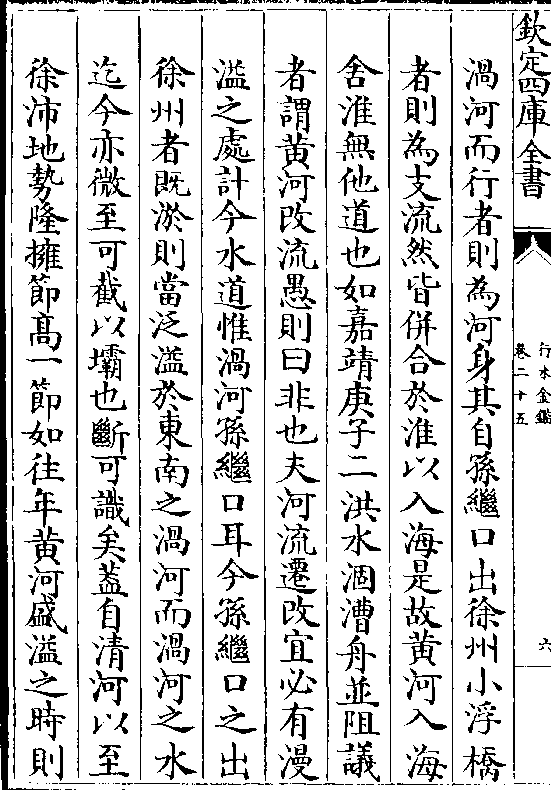 欽定四庫全書
行水金鑑
卷二十五
六
渦河而行者則為河身其自孫繼口出徐州小浮橋
者則為支流然皆併合於淮以入海是故黄河入海
舍淮無他道也如嘉靖庚子二洪水涸漕舟並阻議
者謂黄河改流愚則曰非也夫河流遷改宜必有漫
溢之處計今水道惟渦河孫繼口耳今孫繼口之出
徐州者既淤則當泛溢於東南之渦河而渦河之水
迄今亦微至可截以壩也斷可識矣葢自清河以至
徐沛地勢隆擁節高一節如往年黄河盛溢之時則